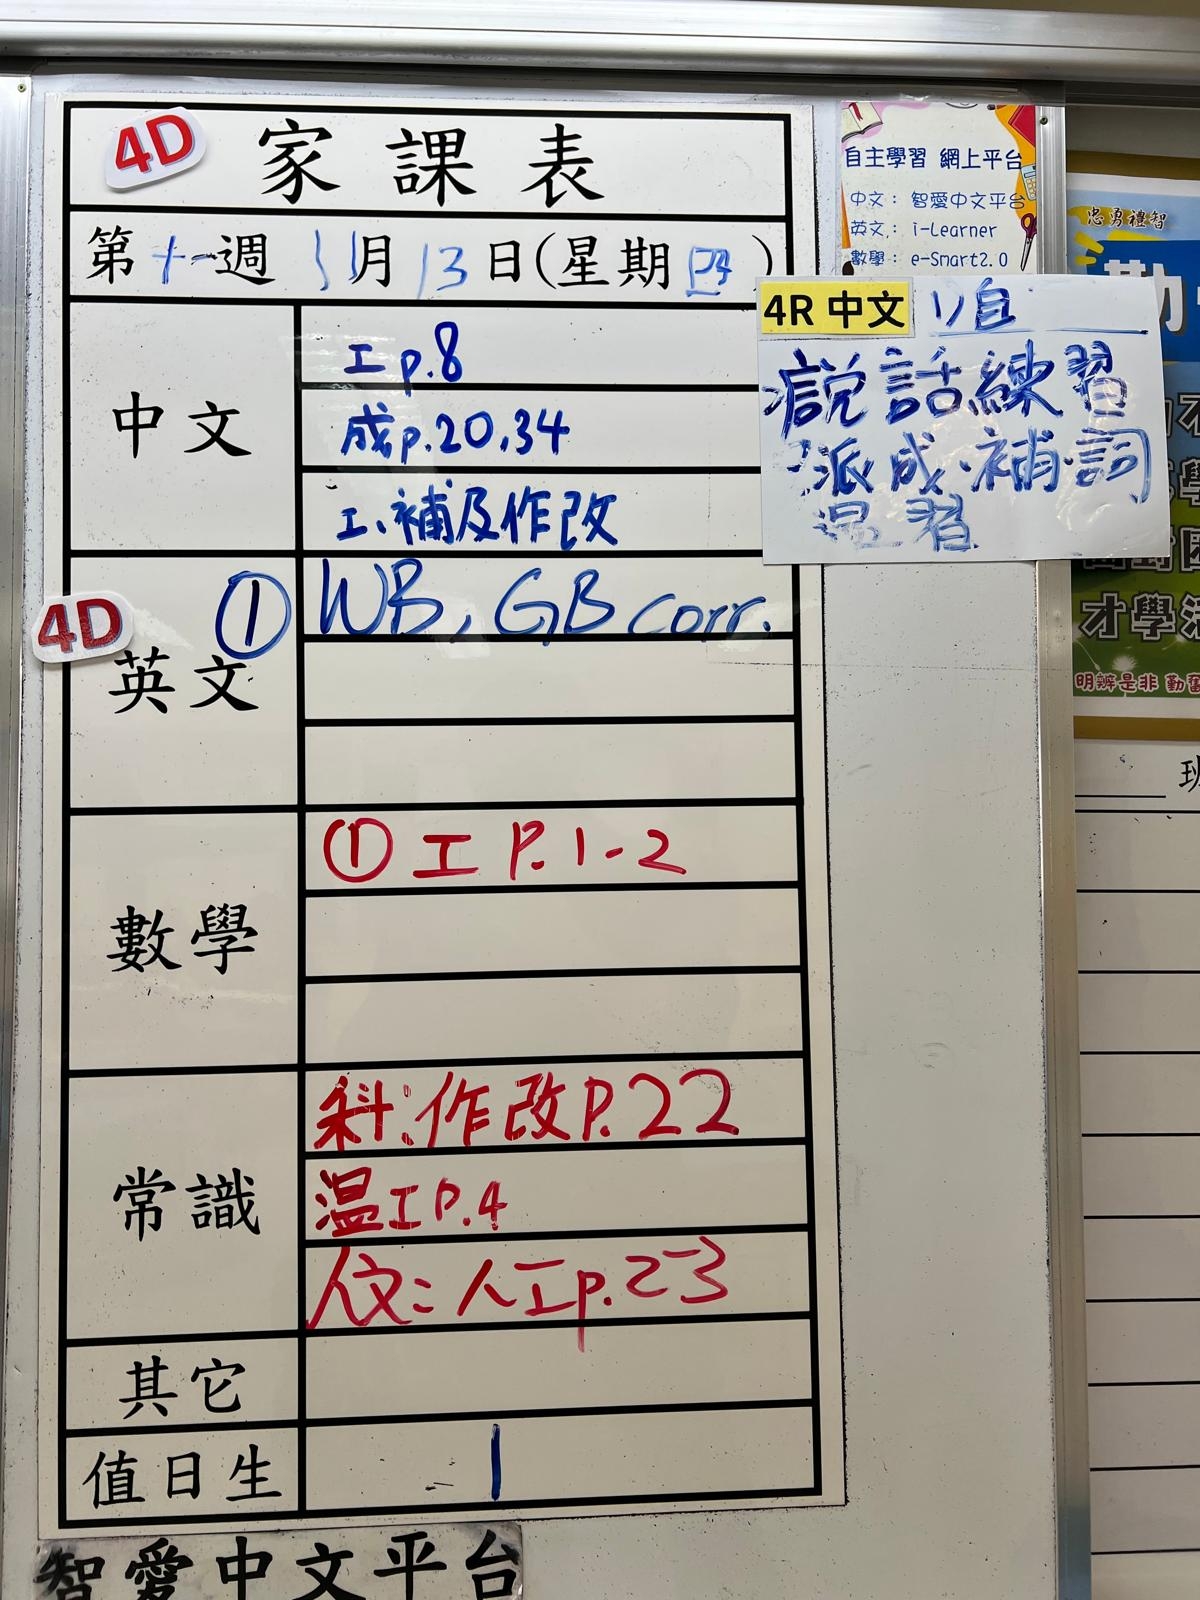 4D 家課表
第十一週 11月13日(星期四)
中文
工p.8
成p.20,34
工、補及作改
4D
英文
① WB, GB corr.
數學
① 工 P.1-2
常識
科:作改P.22
温工P.4
人文:人工p.2-3
其它
值日生
1
智愛中文平台
自主學習 網上平台
中文: 智愛中文平台
英文: i-Learner
數學: e-Smart2.0
4R 中文
說話練習
派成、補、詞
温習
忠勇禮智
勤
才學
明辨是非 勤奮
班